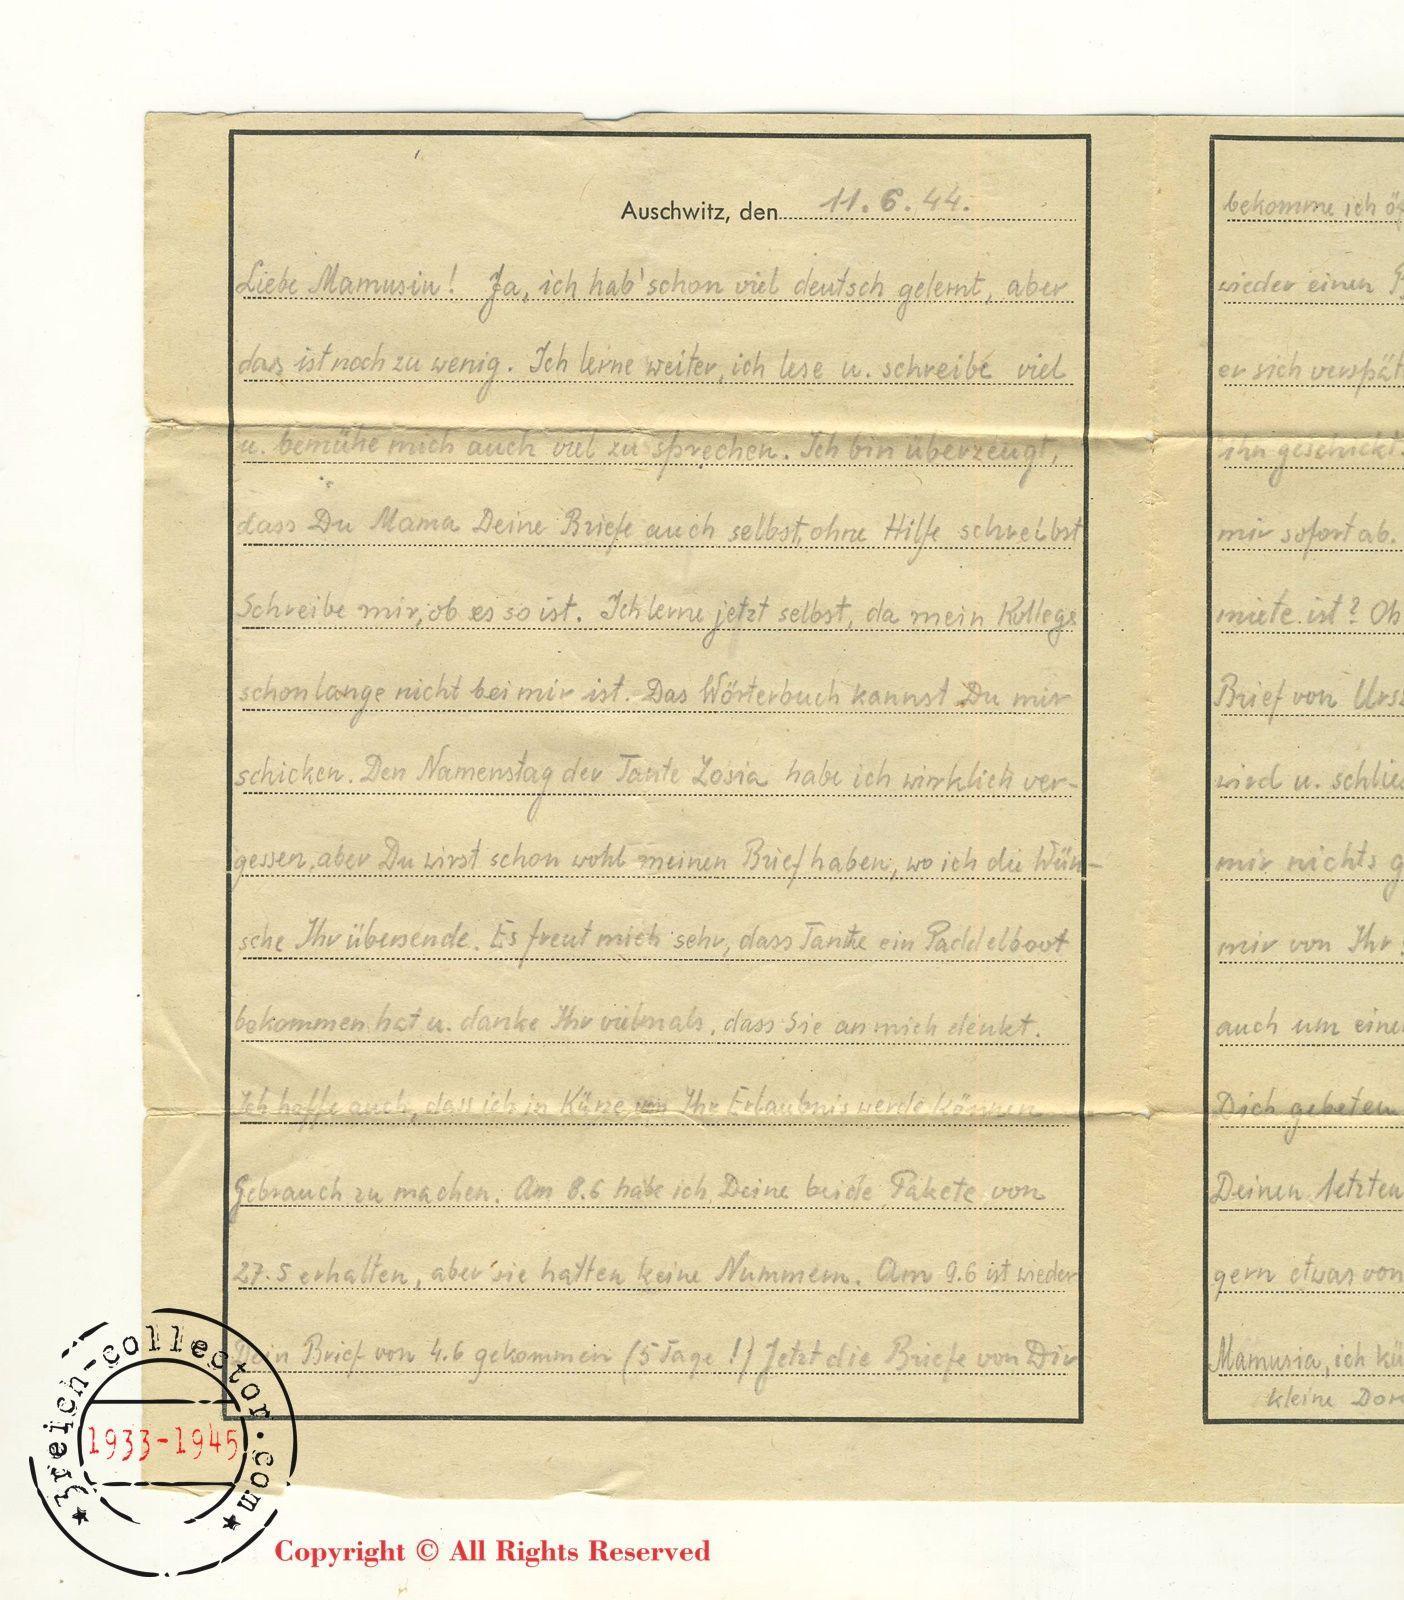 Auschwitz, den 11.6.44.
Liebe Mamusiu! Ja, ich hab' schon viel deutsch gelernt, aber
das ist noch zu wenig. Ich lerne weiter, ich lese u. schreibe viel
u. bemühe mich auch viel zu sprechen. Ich bin überzeugt,
dass Du Mama Deine Briefe auch selbst, ohne Hilfe schreibst
Schreibe mir, ob es so ist. Ich lerne jetzt selbst, da mein Kollege
schon lange nicht bei mir ist. Das Wörterbuch kannst Du mir
schicken. Den Namenstag der Tante Zosia habe ich wirklich ver-
gessen, aber Du wirst schon wohl meinen Brief haben, wo ich die Wün-
sche Ihr übersende. Es freut mich sehr, dass Tante ein Paddelboot
bekommen hat u. danke Ihr vielmals, dass Sie an mich denkt.
Ich hoffe auch, dass ich in Kürze von Ihr Erlaubnis werde können
Gebrauch zu machen. Am 8.6 habe ich Deine beide Pakete von
27.5 erhalten, aber sie hatten keine Nummern. Am 9.6 ist wieder
Dein Brief von 4.6 gekommen (5 Tage!) Jetzt die Briefe von Dir
bekomme ich
wieder einen
er sich verspät
ihn geschickt.
mir sofort ab.
miete ist? Ob
Brief von
wird u.
mir nichts
mir von Ihr
auch um
Dich gebeten
Deinen letzten
gern etwas von
Mamusia, ich
kleine
3reich-collector.com
1933-1945
Copyright © All Rights Reserved